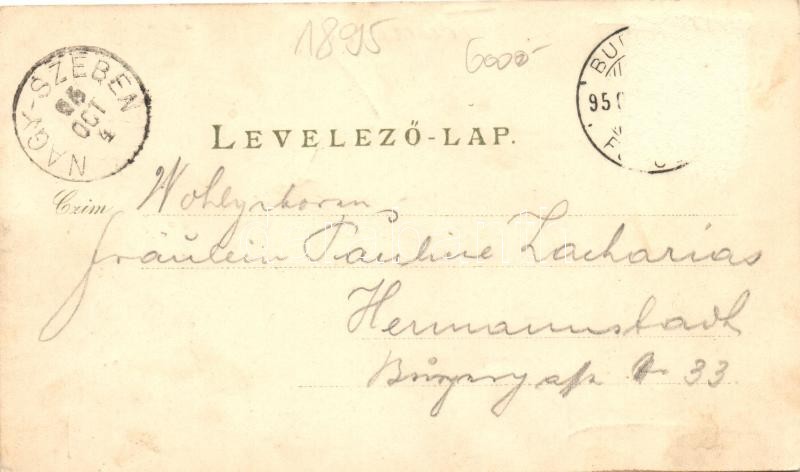 1895
6000
NAGY-SZEBEN
95
OCT
4
BU
95
LEVELEZŐ-LAP.
Czim Wohlgeboren
Fräulein Pauline Zacharias
Hermannstadt
33